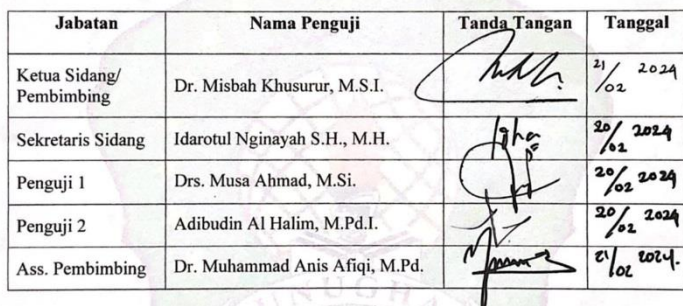 Jabatan Nama Penguji Tanda Tangan Tanggal
Ketua Sidang/
Pembimbing Dr. Misbah Khusurur, M.S.I. 21/02 2024
Sekretaris Sidang Idarotul Nginayah S.H., M.H. Igha 20/02 2024
Penguji 1 Drs. Musa Ahmad, M.Si. 20/02 2024
Penguji 2 Adibudin Al Halim, M.Pd.I. 20/02 2024
Ass. Pembimbing Dr. Muhammad Anis Afiqi, M.Pd. 21/02 2024.
UNUGHA